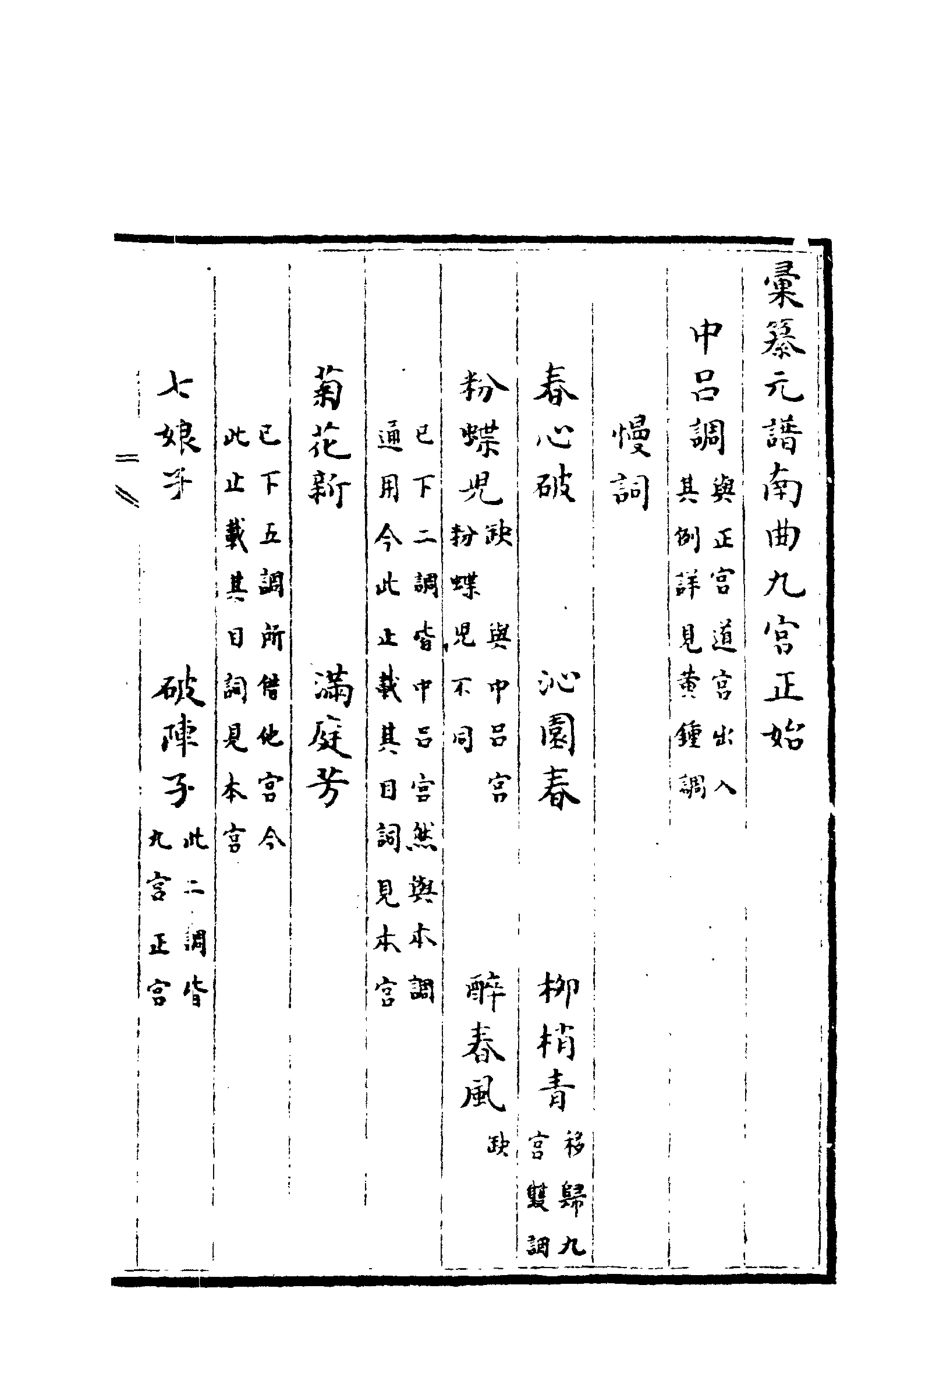 彙纂元譜南曲九宮正始
中呂調 與正宮道宮出入
其例詳見黃鍾調
慢詞
春心破 沁園春 柳梢青 移歸九
宮雙調
粉蝶兒 缺 與中呂宮
粉蝶兒不同 醉春風 缺
已下二調皆中呂宮然與本調
通用今此止載其目詞見本宮
菊花新 滿庭芳
已下五調所借他宮今
此止載其目詞見本宮
七娘子 破陣子 此二調皆
九宮正宮